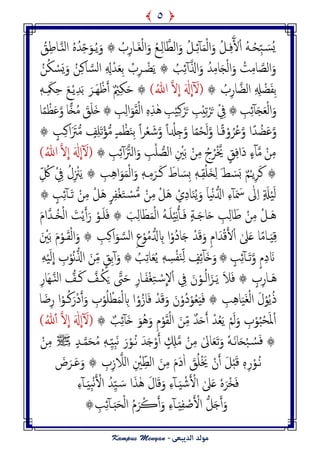 ﴿ ٥ ﴾
يُسَبِّحُهُ الْآفِلُ وَالْمَآئِلُ وَالطَّالِعُ وَالْغَارِبُ ۞ وَيُوَحِّدُهُ النَّاطِقُ
وَالصَّامِتُ وَالْجَامِدُ وَالذَّآئِبُ ۞ يَضْرِبُ بِعَدْلِهِ السَّاكِنُ وَيَسْكُنُ
بِفَضْلِهِ الضَّارِبُ (لَآإِلٰهَ إِلَّا اللهُ) ۞ حَكِيْمٌ أَظْهَرَ بَدِيْعَ حِكَمِهِ
وَالْعَجَآئِبِ ۞ فِيْ تَرْتِيْبِ تَرْكِيْبِ هٰذِهِ الْقَوَالِبِ ۞ خَلَقَ مُخًّا وَعَظْمًا
وَعَضُدًا وَعُرُوْقًا وَلَحْمًا وَجِلْدًا وَشَعْرًا بِنَظْمٍ مُؤْتَلِفٍ مُتَرَاكِبٍ ۞
مِنْ مَّآءٍ دَافِقٍ يَخْرُجُ مِنْ بَيْنِ الصُّلْبِ وَالتَّرَآئِبِ (لَآإِلٰهَ إِلَّا اللهُ)
۞ كَرِيْمٌ بَسَطَ لِخَلْقِهِ بِسَاطَ كَرَمِهِ وَالْمَوَاهِبِ ۞ يَنْزِلُ فِيْ كُلِّ
لَيْلَةٍ إِلٰى سَمَآءِ الدُّنْيَا وَيُنَادِيْ هَلْ مِنْ مُسْتَغْفِرٍ هَلْ مِنْ تَآئِبٍ ۞
هَلْ مِنْ طَالِبِ حَاجَةٍ فَأُنِيْلُهُ الْمَطَالِبَ ۞ فَلَوْ رَأَيْتَ الْخُدَّامَ
قِيَامًا عَلَى الْأَقْدَامِ وَقَدْ جَادُوْا بِالدُّمُوْعِ السَّوَاكِبِ ۞ وَالْقَوْمَ بَيْنَ
نَادِمٍ وَتَآئِبٍ ۞ وَخَآئِفٍ لِنَفْسِهِ يُعَاتِبُ ۞ وَآبِقٍ مِنَ الذُّنُوْبِ إِلَيْهِ
هَارِبٍ ۞ فَلَا يَزَالُوْنَ فِي الْاِسْتِغْفَارِ حَتّٰى يَكُفَّ كَفُّ النَّهَارِ
ذُيُوْلَ الْغَيَاهِبِ ۞ فَيَعُوْدُوْنَ وَقَدْ فَازُوْا بِالْمَطْلُوْبِ وَأَدْرَكُوْا رِضَا
الْمَحْبُوْبِ وَلَمْ يَعُدْ أَحَدٌ مِنَ الْقَوْمِ وَهُوَ خَآئِبٌ ۞ (لَآإِلٰهَ إِلَّا اللهُ)
۞ فَسُبْحَانَهُ وَتَعَالٰى مِنْ مَّلِكٍ أَوْجَدَ نُوْرَ نَبِيِّهِ مُحَمَّدٍ ﷺ مِنْ
نُوْرِهِ قَبْلَ أَنْ يَخْلُقَ آدَمَ مِنَ الطِّيْنِ اللَّازِبِ ۞ وَعَرَضَ
فَخْرَهُ عَلَى الْأَشْيَآءِ وَقَالَ هٰذَا سَيِّدُ الْأَنْبِيَآءِ
وَأَجَلُّ الْأَصْفِيَآءِ وَأَكْرَمُ الْحَبَآئِبِ ۞
Kampus Menyan - مولد الديبعى